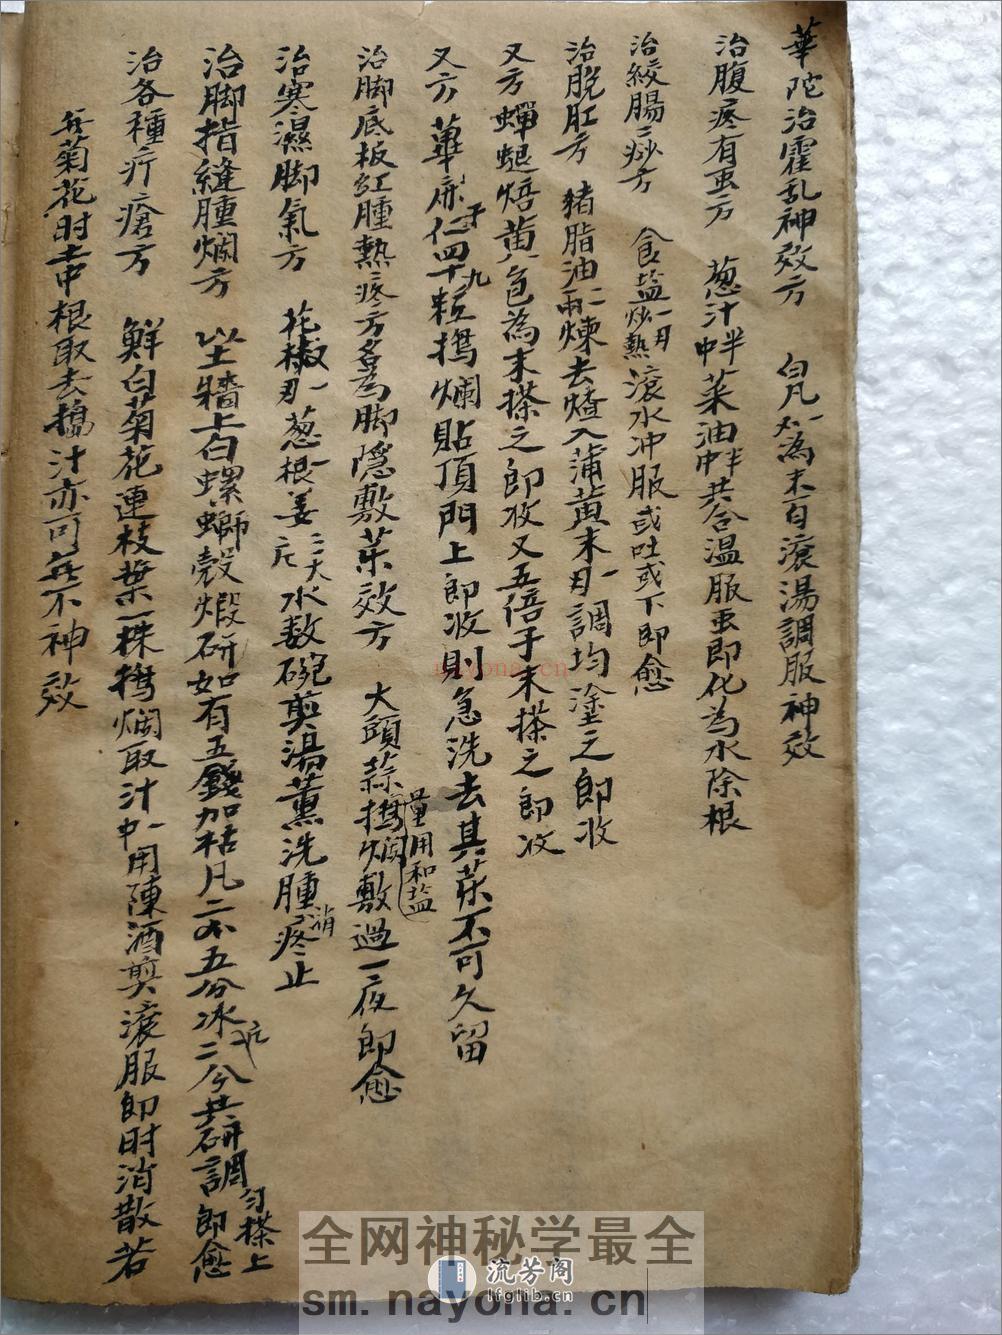 華陀治霍乱神效方　白凡一为為末百滚湯調服神效
治腹疼有虫方　葱汁半中菜油半中共合温服虫即化為水除根
治絞腸痧方　食盐一両炒熱滚水冲服或吐或下即愈
治脱肛方　猪脂油二両煉去渣入蒲黄末一両調均塗之即收
又方蟬蜕焙黄色為末搽之即收又五倍子末搽之即收
又方蓖麻子仁四十九粒搗爛貼頂門上即收則急洗去其药不可久留
治脚底板紅腫熱疼方名為脚隱敷药效方　大頭蒜搗爛量用和盐敷過一夜即愈
治寒濕脚氣方　花椒一両葱根一姜三大片水数碗煎湯薰洗腫消疼止
治脚指縫腫爛方　以土牆上白螺螄殼煅研如有五錢加枯凡二不五分冰片二分共研調匀搽上即愈
治各種疔瘡方　鮮白菊花連枝葉一株搗爛取汁一中用陳酒煎滚服即时消散若
無菊花时土中根取去搗汁亦可無不神效
全网神秘学最全
sm.nayona.cn
流芳阁
lfglib.cn
nayona.cn